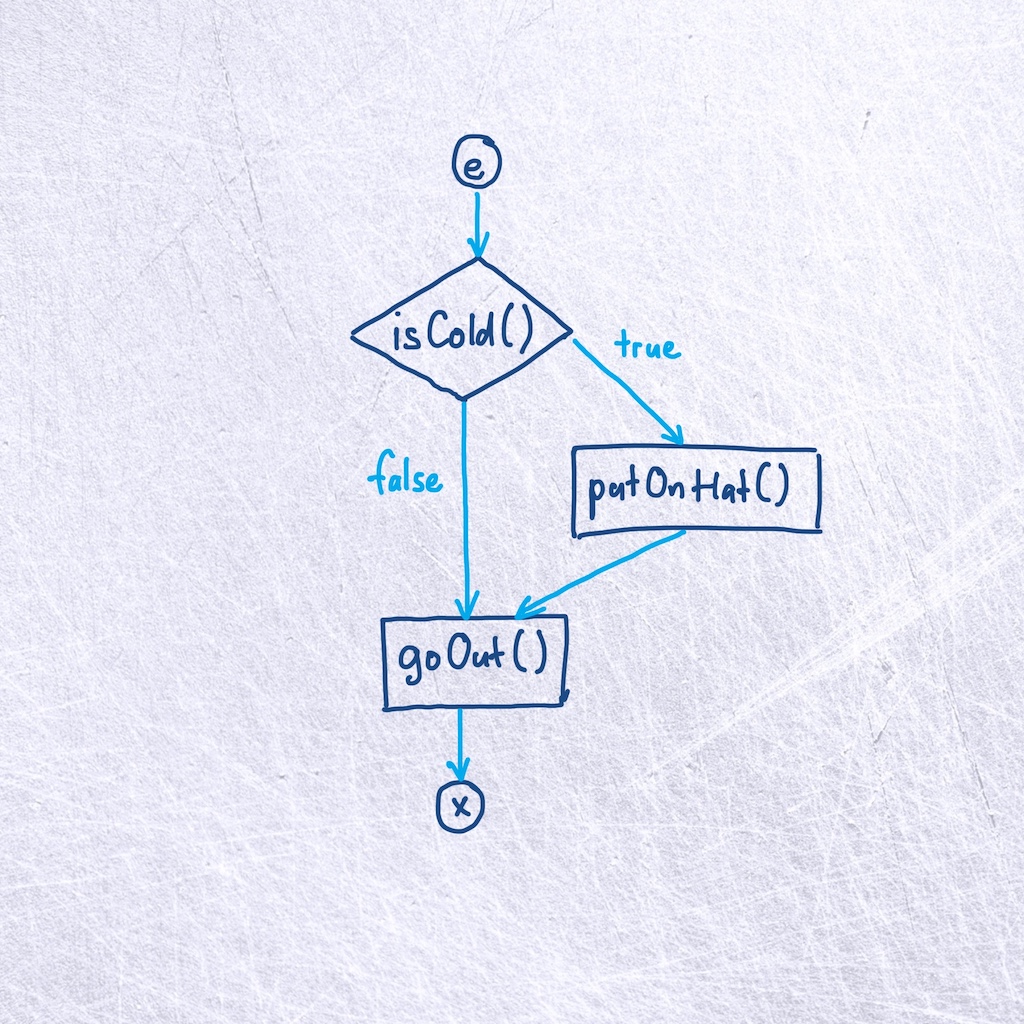 e
isCold()
true
false
putOnHat()
goOut()
x